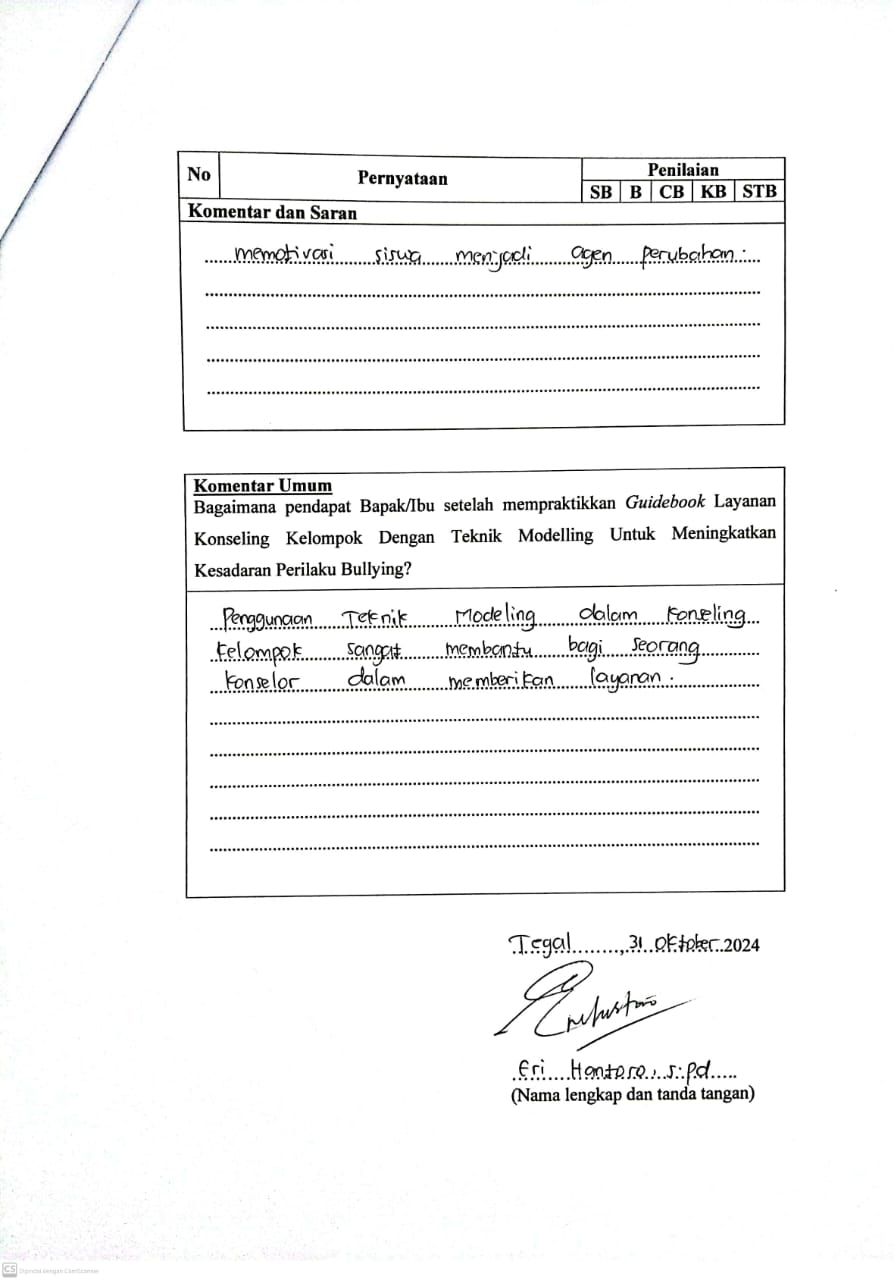 No Pernyataan Penilaian
SB B CB KB STB
Komentar dan Saran
memotivasi siswa menjadi agen perubahan.
Komentar Umum
Bagaimana pendapat Bapak/Ibu setelah mempraktikkan Guidebook Layanan
Konseling Kelompok Dengan Teknik Modelling Untuk Meningkatkan
Kesadaran Perilaku Bullying?
Penggunaan Teknik Modeling dalam Konseling
Kelompok sangat membantu bagi seorang
Konselor dalam memberikan layanan.
Tegal, 31 Oktober 2024
Eri S.Pd
(Nama lengkap dan tanda tangan)
CS Dipindai dengan CamScanner